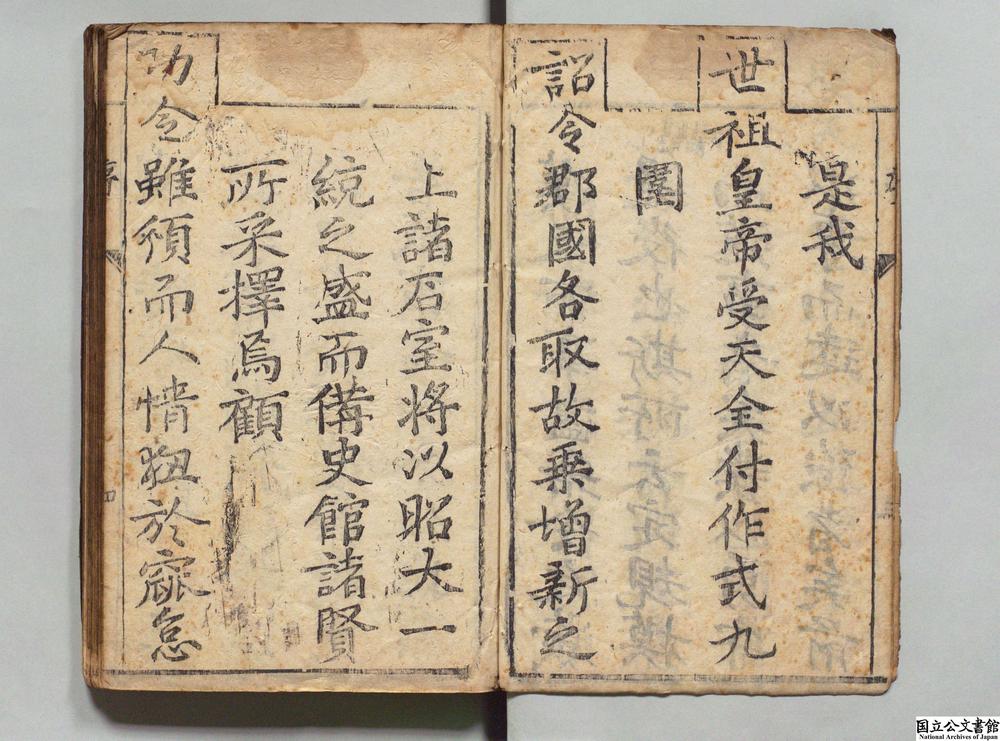 是我
世祖皇帝受天全付作式九
圍
詔令郡國各取故乗增新之
上諸石室將以昭大一
統之盛而備史館諸賢
所采擇焉顧
功令雖頒而人情狃於寙怠
序
国立公文書館
National Archives of Japan